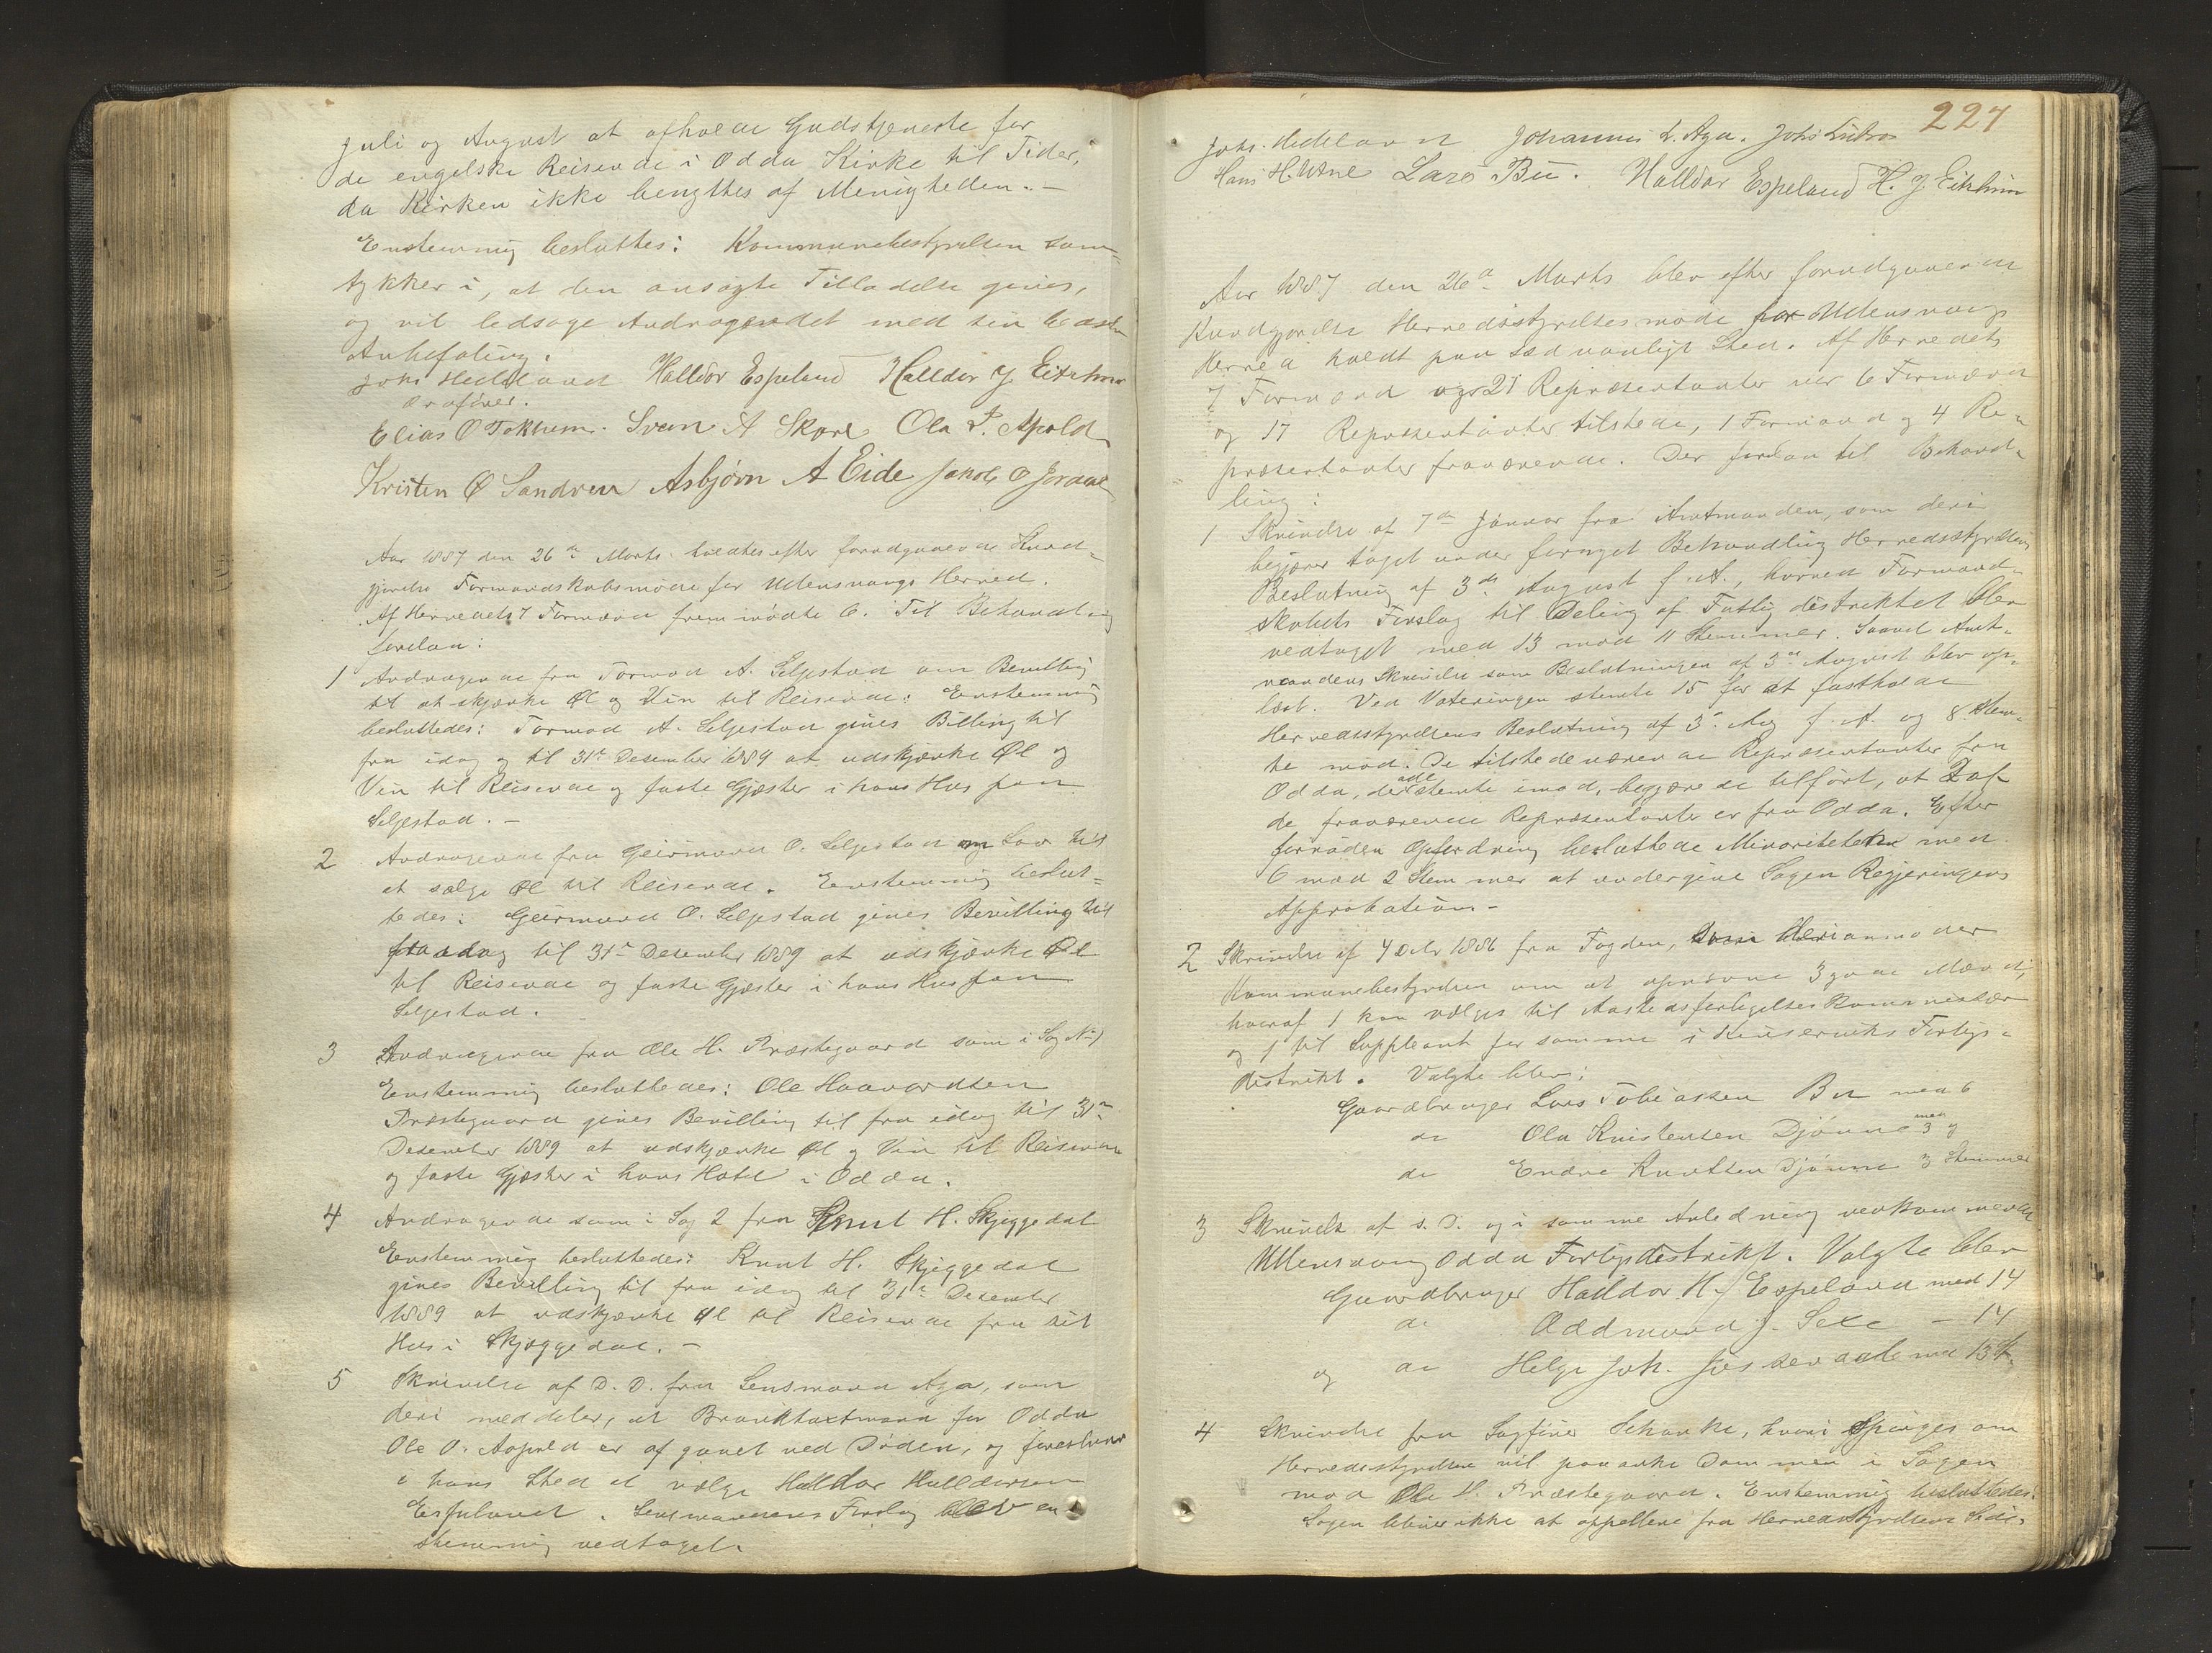 juli og August at afholde Gudstjeneste for
de engelske Reisende i Odda Kirke til Tider,
da Kirken ikke benyttes af Menigheden. —
Enstemmig besluttes: Kommunebestyrelsen sam-
tykker i, at den ansøgte Tilladelse gives,
og vil ledsage Andragendet med sin bedste
Anbefaling.
Johs Hedeland Halldor Espeland Halldor J Eitrheim
Ordfører.
Elias O Tokheim. Sven A Skare Ola P. Apold
Kristen O Sandven Asbjørn A Eide Jakob O Jordal
Aar 1887 den 26de Marts holdtes efter forudgaaende Kund-
gjørelse Formandskabsmøde for Udensvangs Herred.
Af Herredets 7 Formænd fremmødte 6. Til Behandling
forelaa:
1 Andragende fra Tormod A. Seljestad om Bevilling
til at skjænke Øl og Vin til Reisende: Enstemmig
besluttedes: Tormod A. Seljestad gives Billing til
fra idag og til 31te Desember 1889 at udskjænke Øl og
Vin til Reisende og faste Gjæster i hans Hus paa
Seljestad. —
2 Andragende fra Geirmund O. Seljestad om Lov til
at sælge Øl til Reisende. Enstemmig beslut-
tedes: Geirmund O. Seljestad gives Bevilling til
fra idag til 31te Desember 1889 at udskjænke Øl
til Reisende og faste Gjæster i hans Hus paa
Seljestad.
3 Andragende fra Ole H. Præstegaard som i Sag No 1
Enstemmig besluttedes: Ole Haavardsen
Præstegaard gives Bevilling til fra idag til 31te
Desember 1889 at udskjænke Øl og Vin til Reisende
og faste Gjæster i hans Hotel i Odda.
4 Andragende som i Sag 2 fra Knut H. Skjeggedal
Enstemmig besluttedes: Knut H. Skjeggedal
gives Bevilling til fra idag til 31te Desember
1889 at udskjænke Øl til Reisende fra sit
Hus i Skjæggedal. —
5 Skrivelse af D. D. fra Lensmand Aga, som
deri meddeler, at Brandtaxtmand for Odda
Ole O. Aapold er afgaaet ved Døden, og foreslaar
i hans Sted at vælge Halldor Halldorsen
Espeland. Lensmandens Forslag blev en
stemmig vedtaget.
227
Johs. Hedeland Johannes L. Aga. Johs Lutro
Hans H. Utne Lars Bu. Halldor Espeland H. J Eitrheim
Aar 1887 den 26de Marts blev efter forudgaaende
Kundgjørelse Herredsstyrelsesmøde for Udensvangs
Herred holdt paa sædvanligt Sted. Af Herredets
7 Formænd og 21 Repræsentanter var 6 Formænd
og 17 Repræsentanter tilstede, 1 Formand og 4 Re-
præsentanter fraværende. Der forelaa til Behand-
ling:
1 Skrivelse af 7de Januar fra Amtmanden, som deri
begjærer taget under fornyet Behandling Herredsstyrelsens
Beslutning af 3de August f. A., hvorved Formand-
skabets Forslag til Deling af Fattigdistriktet blev
vedtaget med 13 mod 11 Stemmer. Saavel Amt-
mandens Skrivelse som Beslutningen af 3de August blev op-
læst. Ved Voteringen stemte 15 for at fastholde
Herredsstyrelsens Beslutning af 3de Aug f. A. og 8 stem-
te mod. De tilstedeværende Repræsentanter fra
Odda, der alle stemte imod, begjærede tilført, at 2 af
de fraværende Repræsentanter er fra Odda. Efter
Opfordring besluttede Minoriteten med
6 mod 2 Stemmer at undergive Sagen Regjeringens
Approbation —
2 Skrivelse af 4 Debr 1886 fra Fogden, hvori anmoder
Kommunebestyrelsen om at opnævne 3 gode Mænd,
hvoraf 1 kan vælges til Aastedsforligelseskommissær
og 1 til Suppleant for samme i Kinserviks Forligs-
distrikt. Valgte blev:
Gaardbruger Lars Tobiassen Bu med 6
do Ola Kristensen Djønne med 3 og
do Endre Knutsen Djønne 3 Stemmer
3 Skrivelse af s. D. og i samme Anledning vedkommende
Ullensvang Odda Forligsdistrikt. Valgte blev
Gaardbruger Halldor H. Espeland med 14
do Oddmund J. Sexe — 14
og do Helge Joh. Jøsendal med 13 St.
4 Skrivelse fra Sagfører Schanke, hvori spørges om
Herredsstyrelsen vil paaanke Dommen i Sagen
mod Ole H. Præstegaard. Enstemmig besluttedes:
Sagen bliver ikke at appellere fra Herredsstyrelsens Side.